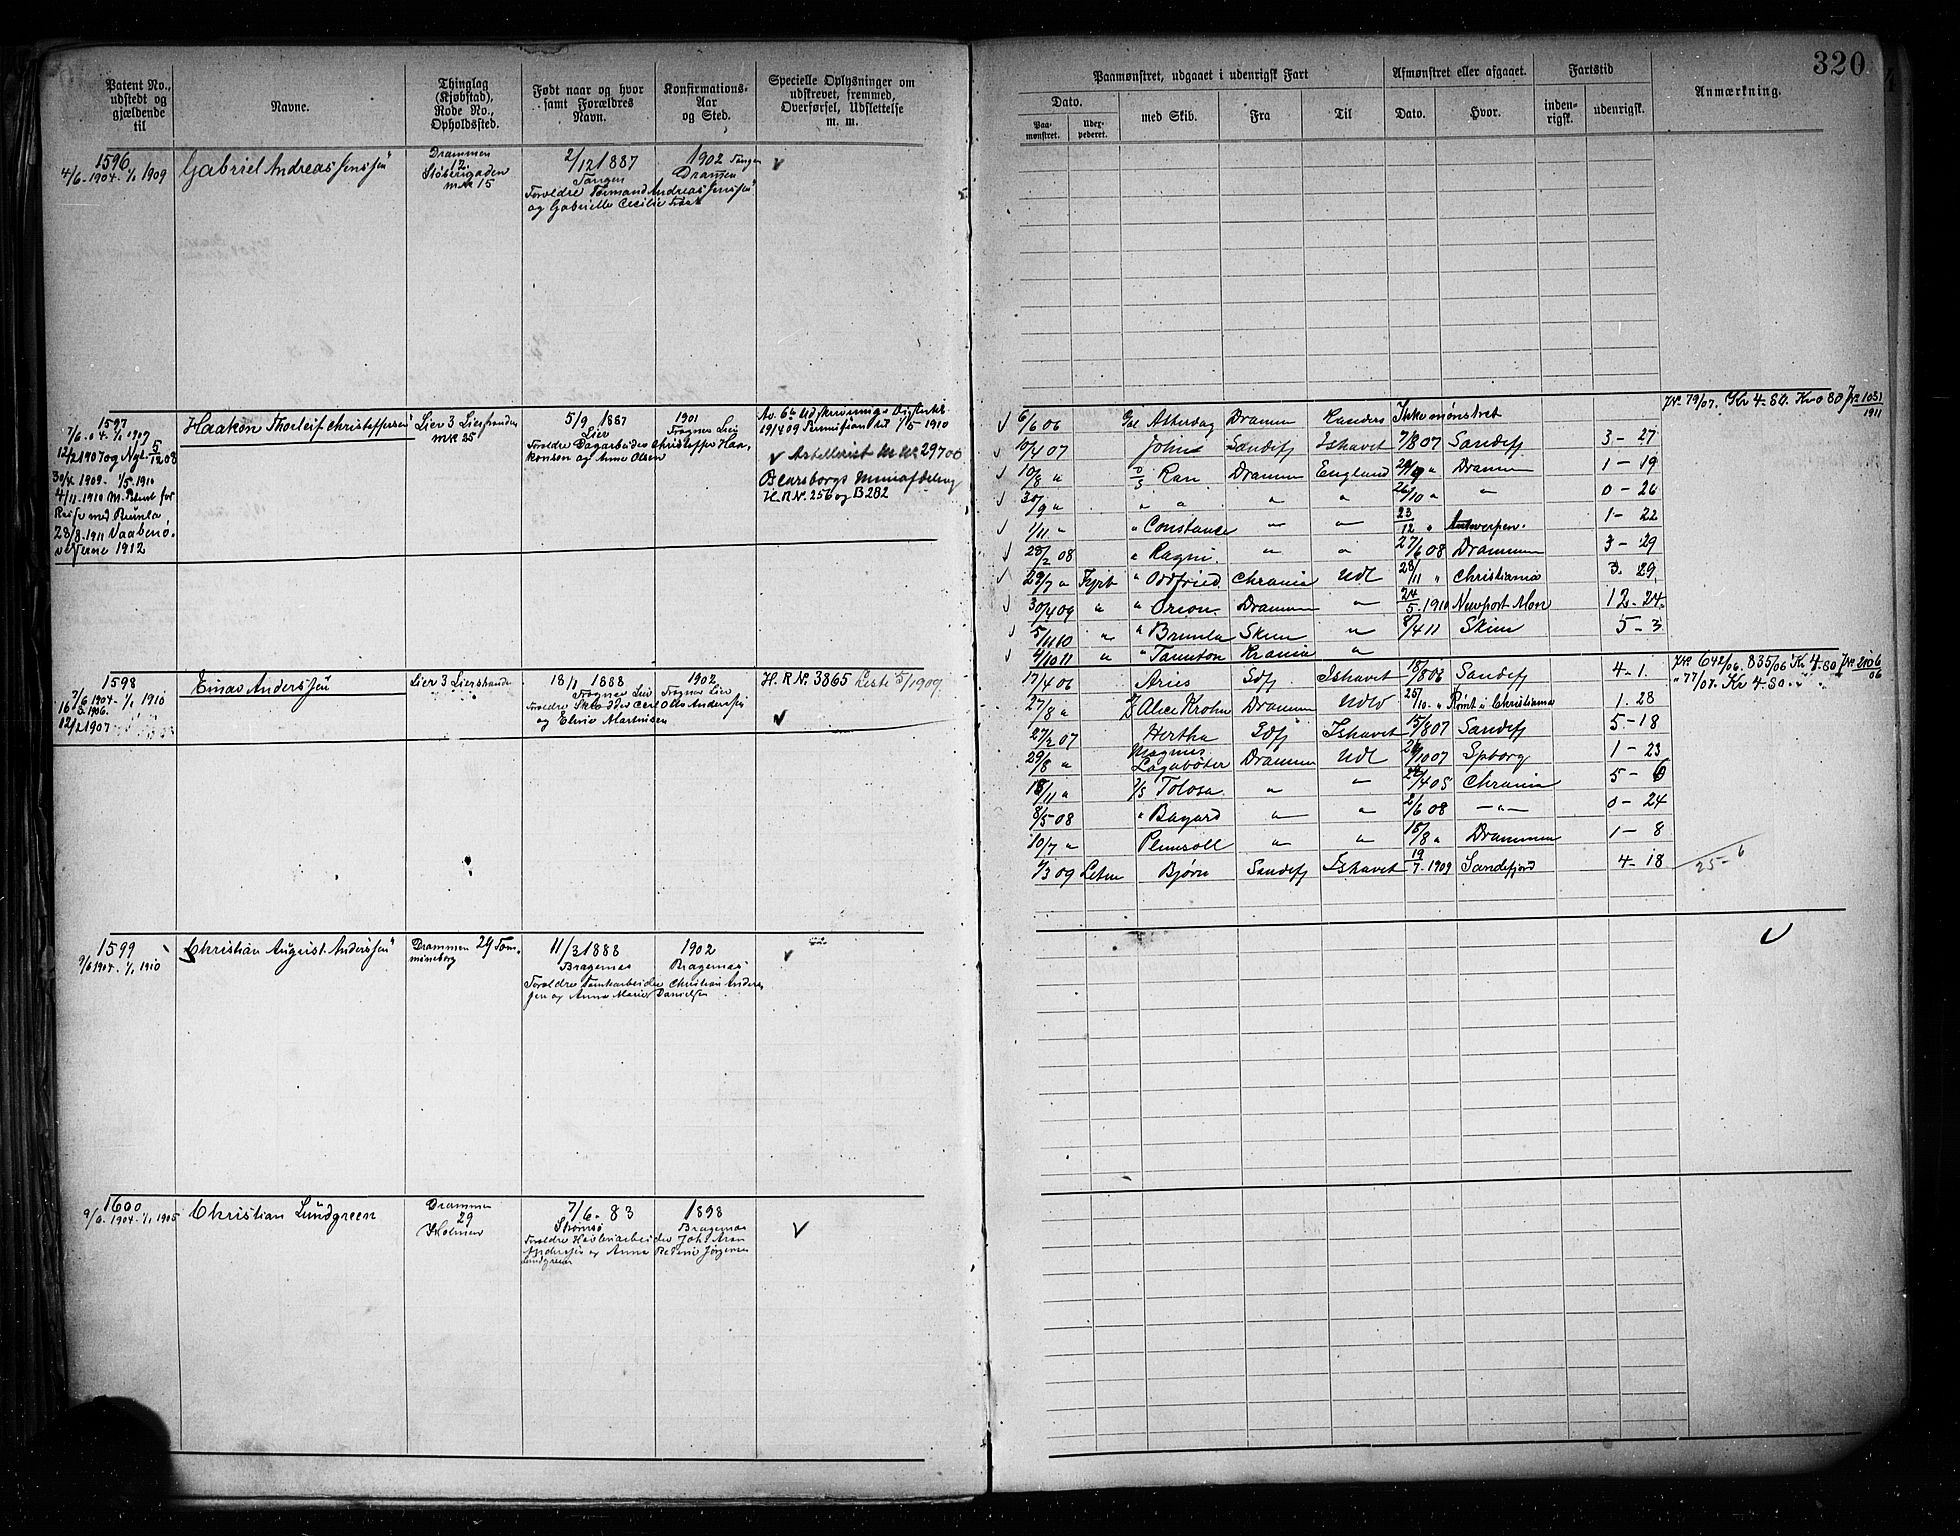 320
Patent No., udstedt og gjældende til
Navne.
Thinglag (Kjøbstad), Rode No., Opholdssted.
Født naar og hvor samt Forældres Navn.
Konfirmations-Aar og Sted.
Specielle Oplysninger om udskrevet, fremmed, Overførsel, Udslettelse m. m.
Paamønstret, udgaaet i udenrigsk Fart
Afmønstret eller afgaaet.
Fartstid
Anmærkning.
Dato.
Paa-mønstret.
med Skib.
Fra
Til
Dato.
Hvor.
inden-rigsk.
udenrigsk.
1596
4/6 1904 - 1/1 1909
Gabriel Andreas Jenssen
Drammen
12
mk 15
2/12 1887
Tangen
Foreldre Tømmand Andreas Jenssen
og Gabrielle Cecilie
1902 Tangen
Drammen
1597
7/6 04 1/1 1907
12/2 1907 og Nyt 5/12 08
30/X 1909 - 1/5 1910
4/11 1910 m.
Reise med Brunla
28/8 1911 Vaabenø-
velserne 1912
Haakon Thorleif Christoffersen
Lier 3 Lierstranden
mk 25
5/9 1887
Lier
Foreldre Dagarbeider Christoffer Haa-
konsen og Anna Olsen
1901
Frogner Lier
Av. 6te Udskrivnings Distrikt
19/4 09 Permission til 1/5 1910
Artillerist M No 29700
Oscarsborgs Mineafdeling
H.R.No. 256 og B 282
6/6 06 Gal Atterdag Drammen Randers Ikke mønstret
10/4 07 Johns Sandefj Ishavet 7/8 07 Sandefj 3 - 27
10/8 " D/S Ran Drammen England 29/9 " Drammen 1 - 19
30/9 " " " " " 26/10 " " 0 - 26
1/11 " " Constance " " 23/12 " Antwerpen. 1 - 22
28/2 08 " Ragni. " " 27/6 08 Drammen 3 - 29
29/7 " Fyrb " Oddfried Chrania Udl 28/11 " Christiania 3. 29.
30/4 09 " " Orion. Drammen " 24/5. 1910 Newport Mon 12 - 24.
5/11 10 " " Brunla Skien " 8/4 11 Skien 5 - 3
4/10 11 " " Taunton Krania "
Jr. 79/07. Kr 4.80. Kr 0.80 Jr 1031/1911
1598
7/6 1904 - 1/1 1910
16/3 1906.
12/2 1907
Einar Anderssen
Lier 3 Lierstranden
18/1 1888
Frogner Lier
Foreldre Carl Otto Anderssen
og Elvine Martinsen
1902
Frogner Lier
H. R No. 3865 Liste 5/1909.
17/4 06 Aries Sdfj Ishavet 18/8 06 Sandefj 4 - 1.
27/8 " Alice Krohn Drammen Udld 25/10. " Rømt i Christiania 1. 28
27/2 07 Hertha Sdfj Ishavet 15/8 07 Sandefj 5 - 18
29/8 " Magnus Lagabøter Drammen Udl 21/10 07 Spborg 1 - 23
18/11 " D/S Tolosa. " " 24/4 08 Chrania 5 - 6
8/5 08 " Bayard " " 2/6 08 - " - 0 - 24
10/7 " Plimsoll " " 18/8 " Drammen 1 - 8
1/3 09 Letm Bjørn Sandefj Ishavet 19/7. 1909 Sandefjord 4 - 18
25 - 6
Jr. 642/06. 835/06 Kr 4.80 Jr 2106/06
" 77/07. Kr 4.80. " "
1599
9/6 1904 - 1/1 1910
Christian August Anderssen
Drammen 29 Tom-
mineborg
11/3 1888
Bragernes
Foreldre Tomtearbeider Christian Anders-
sen og Anna Marie Danielsen
1902
Bragernes
1600
9/6 1904 - 1/1 1905
Christian Lundgreen
Drammen
29
Holmen
7/6 - 83
Strømsø
Foreldre Høvleriarbeider Joh. Aron
Andersen og Anna Bedine Jørgensen
Lundgreen
1898
Bragernes